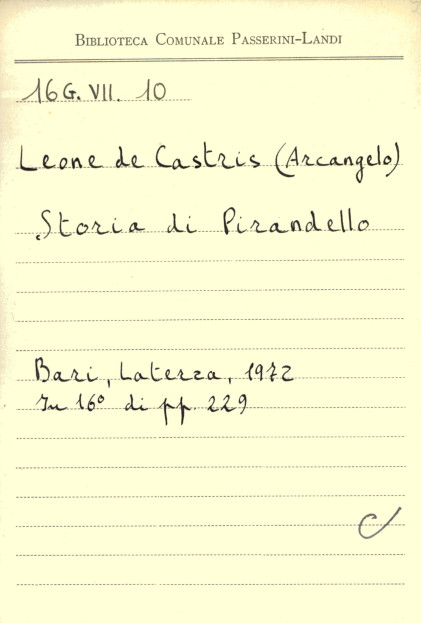 BIBLIOTECA COMUNALE PASSERINI-LANDI
16 G. VII. 10
Leone de Castris (Arcangelo)
Storia di Pirandello
Bari, Laterza, 1972
In 16° di pp. 229